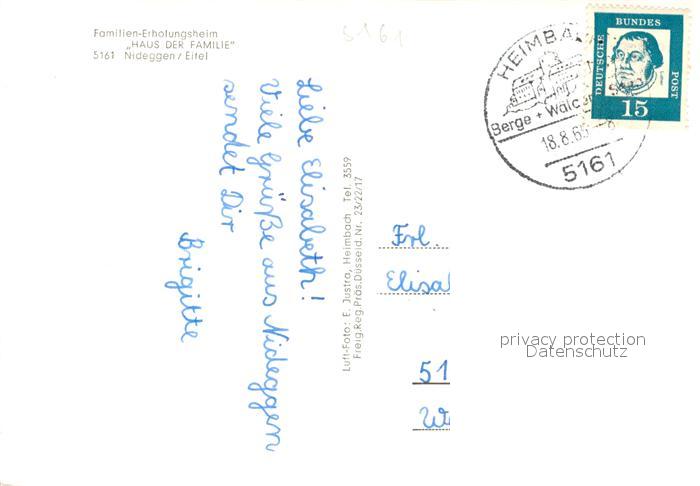 Familien-Erholungsheim
„HAUS DER FAMILIE"
5161 Nideggen / Eifel
5161
Liebe Elisabeth!
Viele Grüße aus Nideggen
sendet Dir
Brigitte
Luft-Foto: E. Justra, Heimbach Tel. 3559
Freig.Reg.Präs.Düsseld.Nr. 23/22/17
HEIMBA
Berge + Wälder
18.8.6
5161
DEUTSCHE BUNDES POST
15
Frl.
Elisa
51
privacy protection
Datenschutz